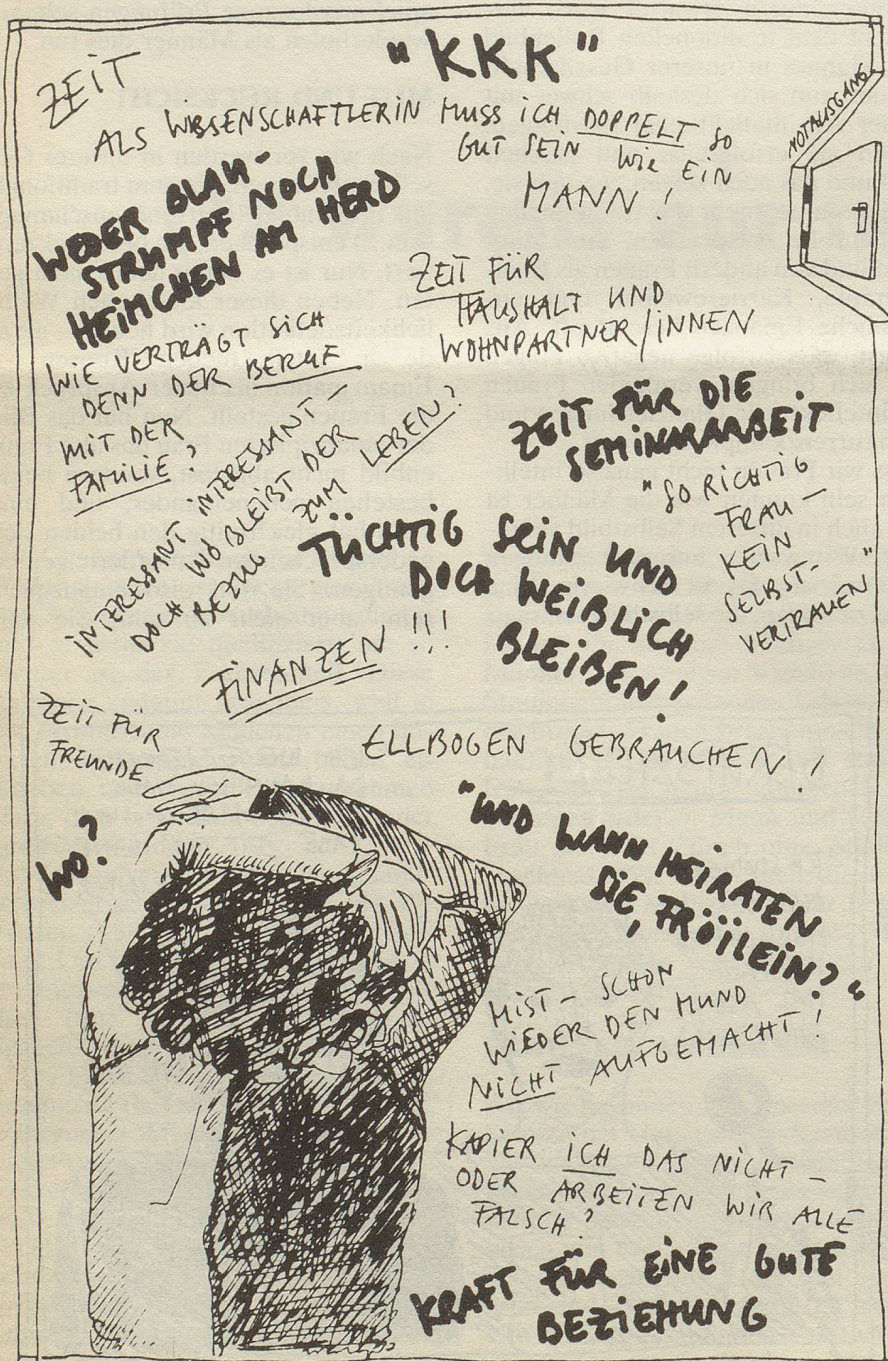 "KKK"
ZEIT
NOTAUSGANG
ALS WISSENSCHAFTLERIN MUSS ICH DOPPELT SO
GUT SEIN WIE EIN
MANN!
WEDER BLAU-
STRUMPF NOCH
HEIMCHEN AM HERD
ZEIT FÜR
HAUSHALT UND
WOHNPARTNER/INNEN
WIE VERTRAGT SICH
DENN DER BERUF
MIT DER
FAMILIE?
INTERESSANT INTERESSANT
DOCH WO BLEIBT DER
BEZUG ZUM LEBEN?
ZEIT FÜR DIE
SEMINARARBEIT
"SO RICHTIG
FRAU -
KEIN
SELBST-
VERTRAUEN"
TÜCHTIG SEIN UND
DOCH WEIBLICH
BLEIBEN!
FINANZEN!!!
ZEIT FÜR
FREUNDE
ELLBOGEN GEBRAUCHEN!
WO?
"UND WANN HEIRATEN
SIE, FRÖILEIN?"
MIST - SCHON
WIEDER DEN MUND
NICHT AUFGEMACHT!
KAPIER ICH DAS NICHT -
ODER ARBEITEN WIR ALLE
FALSCH?
KRAFT FÜR EINE GUTE
BEZIEHUNG